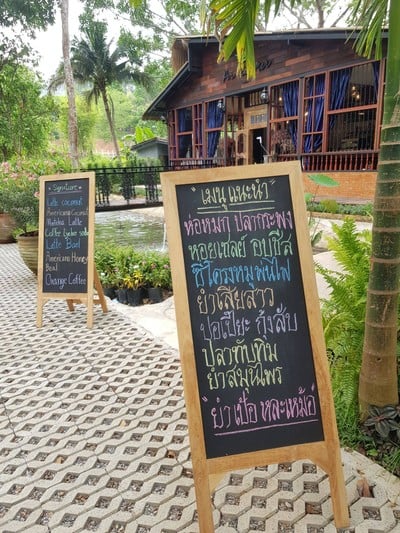 Signature
Latte Coconut
Americano Coconut
Matcha Latte
Latte Bael
Americano Honey
Bael
Orange Coffee
"เมนู แนะนำ"
ห่อหมก ปลากะพง
หอยเชลย์ อบชีส
ซี่โครงหมูพันไฟ
ยำโสยสาว
ปอเปี๊ยะ กุ้งสับ
ปลาทับทิม
ยำสมุนไพร
"ยำเป๋อ หละเหม้อ"